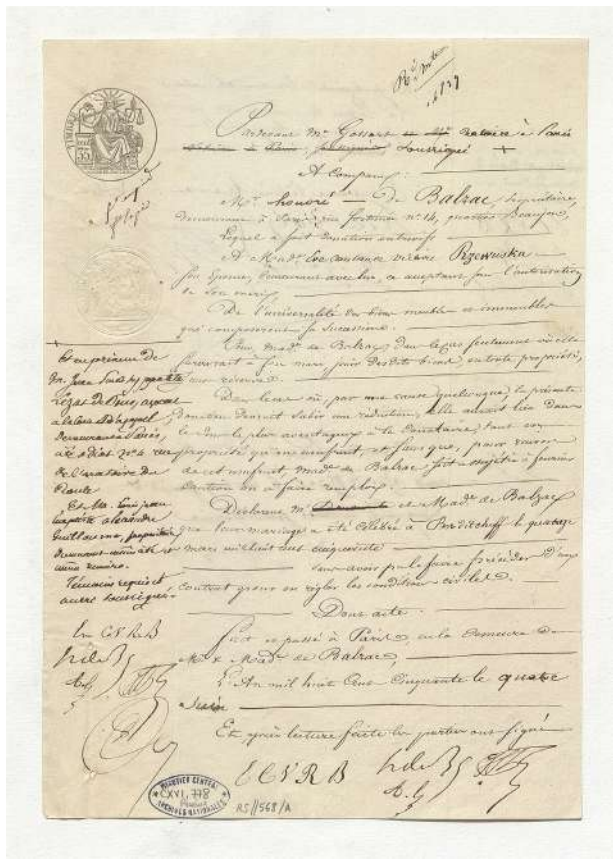 Pardevant Me Gossart notaire à Paris
soussigné
A Comparu:
Mr honoré De Balzac, propriétaire,
demeurant à Paris, rue fortunée no 14, quartier Beaujon,
Lequel a fait donation entrevifs
A Madе Eve constance victoire Rzewuska
son épouse, demeurant avec lui, ce acceptant sous l'autorisation
de son mari
De l'universalité des biens meubles et immeubles
qui composeront sa succession.
Pour, made de Balzac, dans le cas seulement où elle
survivrait à son mari, jouir desdits biens en toute propriété,
sans réserve.
Dans le cas où, par une cause quelconque, la présente
donation devrait subir une réduction, elle aurait lieu dans
le mode le plus avantageux à la donataire, tant en
propriété qu'en usufruit, et sans que, pour raison
de cet usufruit, made de Balzac soit assujétie à fournir
caution ou à faire remploi.
Déclarent, Mr et Made de Balzac
que leur mariage a été célébré à Berditcheff le quatorze
mars mil huit cent cinquante
sans avoir pu le faire précéder d'un
contrat pour en régler les conditions civiles.
Dont acte.
fait et passé à Paris, en la demeure de
M. & Made de Balzac,
L'An mil huit cent cinquante le quatre
Juin
Et après lecture faite les parties ont signé
En présence de
demeurant à Paris,
Et Mr Louis jean
baptiste alexandre
Guillaume, propriétaire
Témoins requis et
aussi soussignés
E C V R B
h de B
E C V R B
h de B
TIMBRE
35
MINUTIER CENTRAL
CXVI, 778
ARCHIVES NATIONALES
RS//568/A